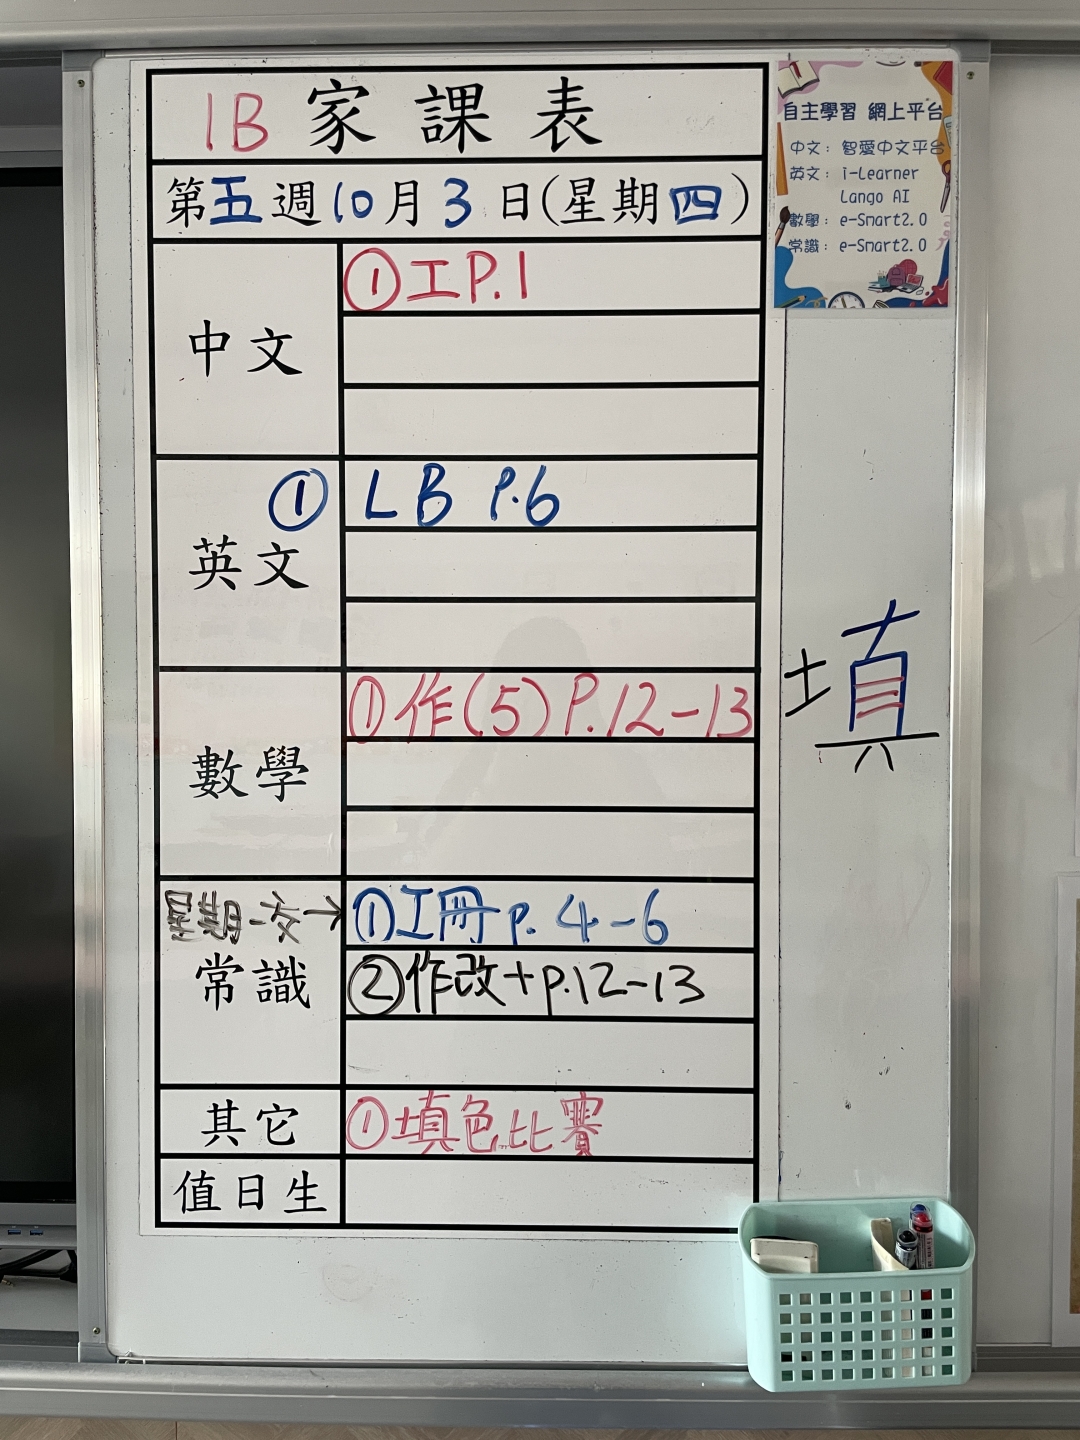 1B 家課表
第五週10月3日(星期四)
中文
①工P.1
英文
① LB P.6
數學
①作(5)P.12-13
星期一交→
①工冊p.4-6
常識
②作改+p.12-13
其它
①填色比賽
值日生
自主學習 網上平台
中文：智愛中文平台
英文：i-Learner
Lango AI
數學：e-Smart2.0
常識：e-Smart2.0
填